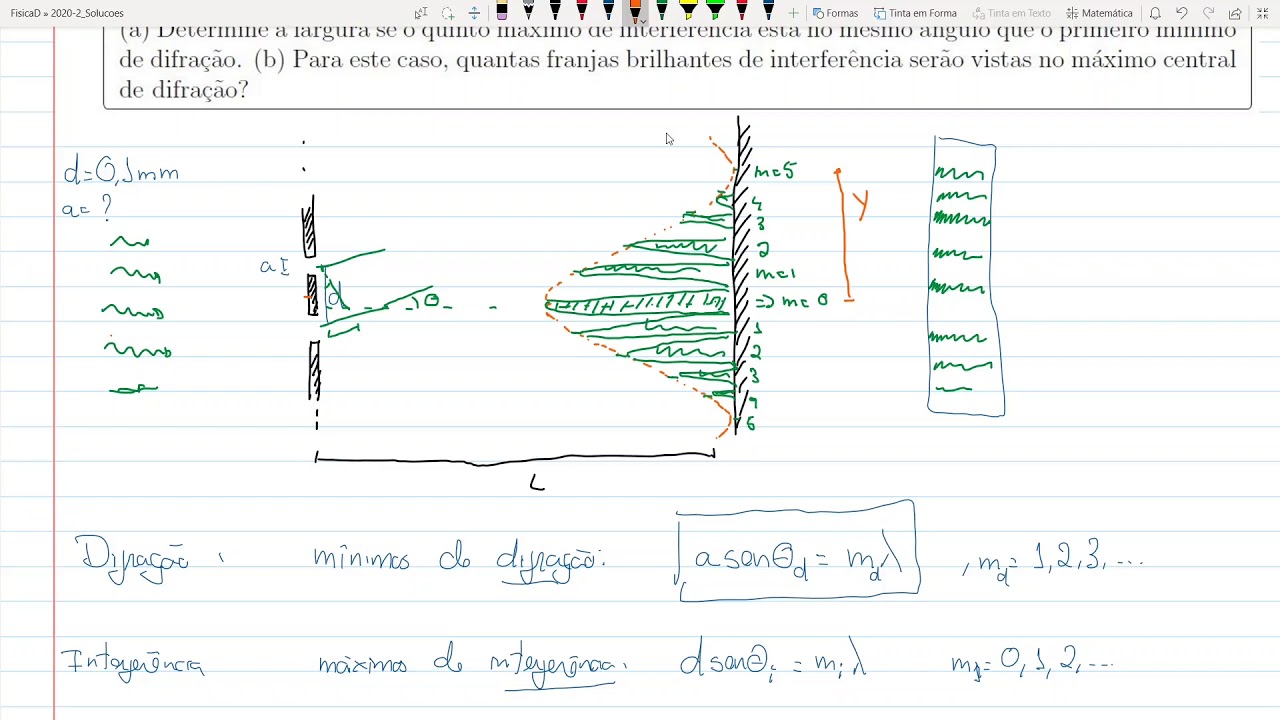 FisicaD » 2020-2_Solucoes
Formas Tinta em Forma Tinta em Texto Matemática
(a) Determine a largura se o quinto máximo de interferência está no mesmo ângulo que o primeiro mínimo
de difração. (b) Para este caso, quantas franjas brilhantes de interferência serão vistas no máximo central
de difração?
d=0,1mm
a= ?
m=5
4
3
2
m=1
=> m=0
1
2
3
4
6
Y
a
d
θ
L
Difração: mínimos de difração: a senθd = mdλ , md= 1,2,3,...
Interferência máximos de interferência: d senθi = miλ mi= 0,1,2,...